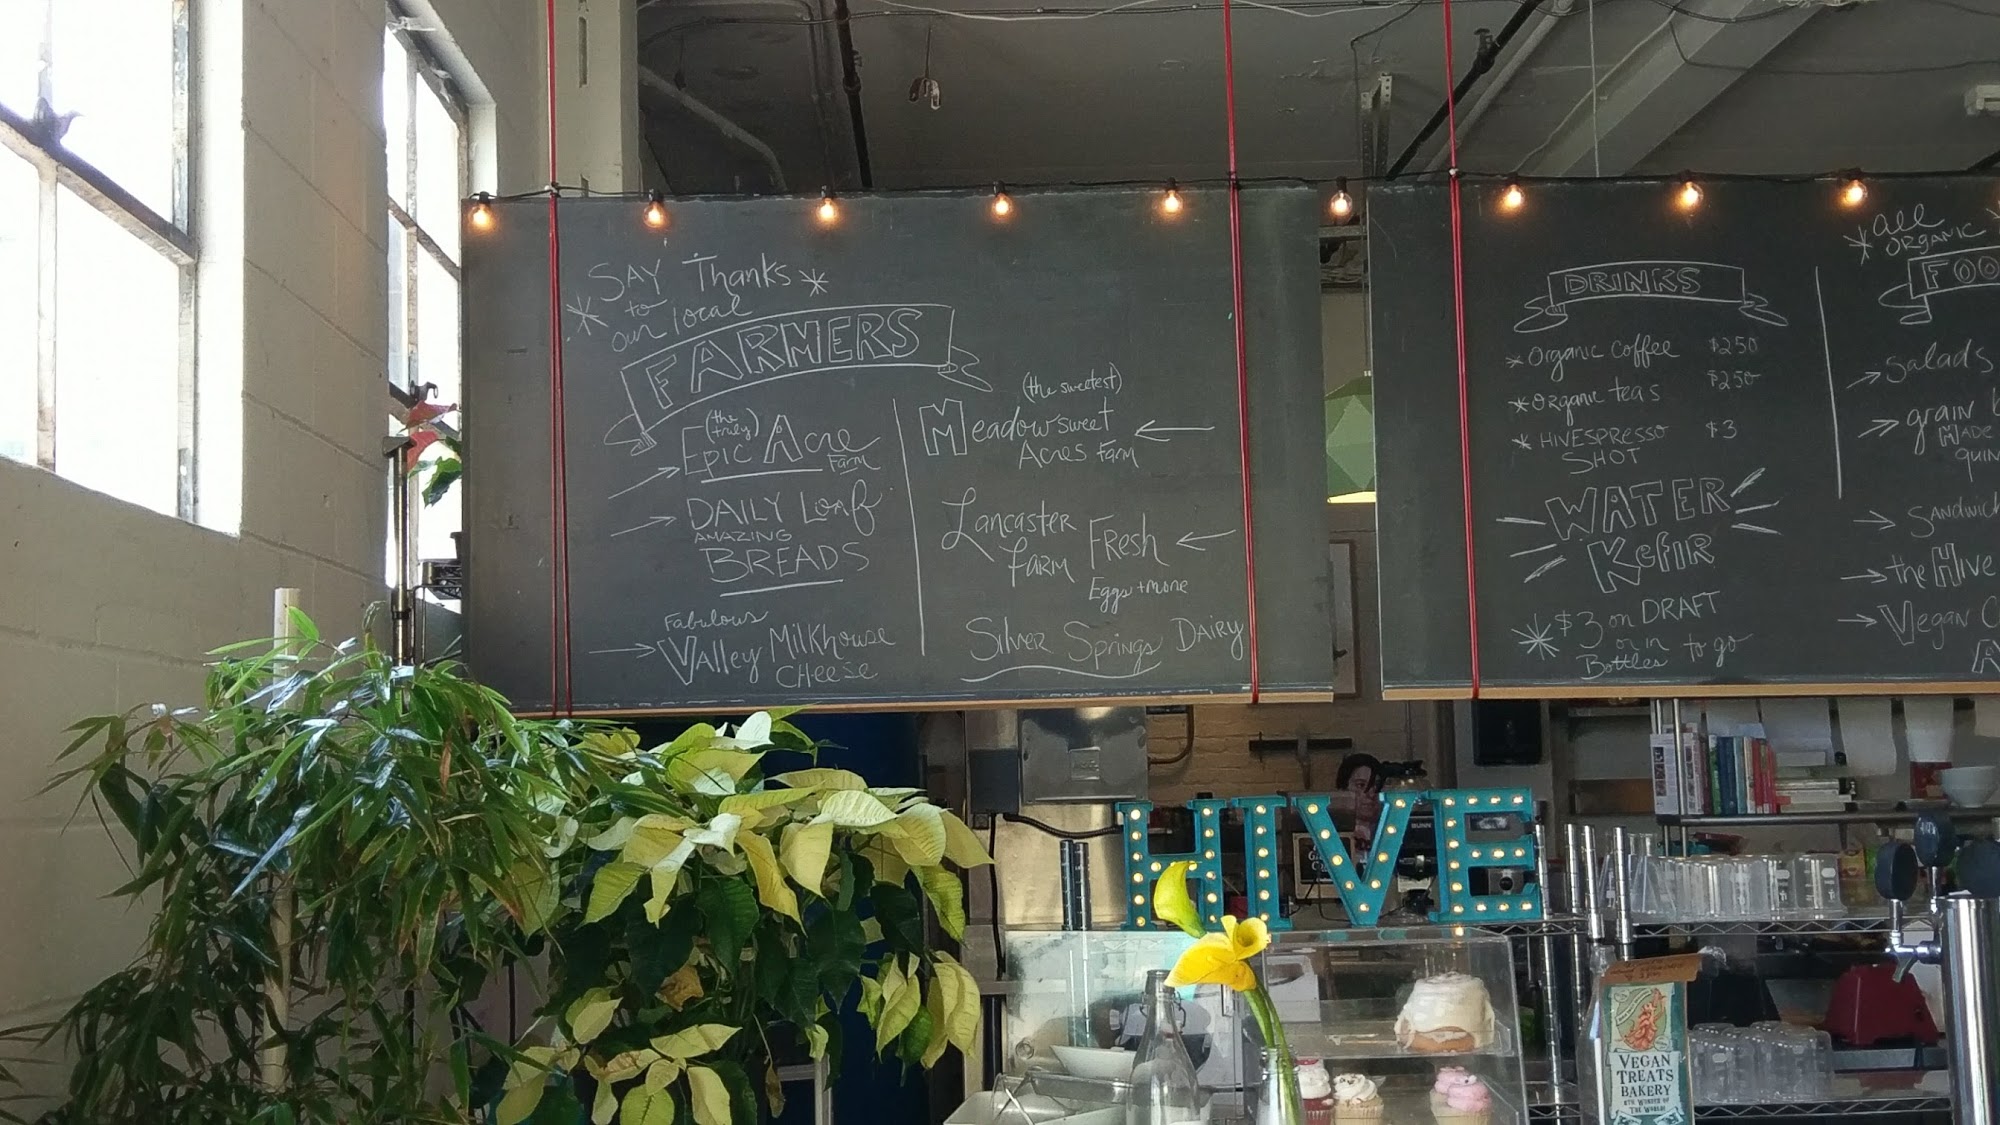 SAY Thanks
to
our local
FARMERS
(the truly)
Epic Acre
Farm
DAILY Loaf
AMAZING
BREADS
Fabulous
Valley Milkhouse
CHeeSe
(the sweetest)
Meadowsweet
Acres Farm
Lancaster
Farm Fresh
Eggs + more
Silver Springs Dairy
DRINKS
Organic coffee $2.50
Organic teas $2.50
HIVESPRESSO $3
SHOT
WATER
Kefir
$3 on DRAFT
or in to go
Bottles
all
ORGANIC
FOO
Salads
grain
MADE
QUIN
SANDWICH
the Hive
Vegan C
HIVE
VEGAN
TREATS
BAKERY
8TH WONDER OF
THE WORLD!